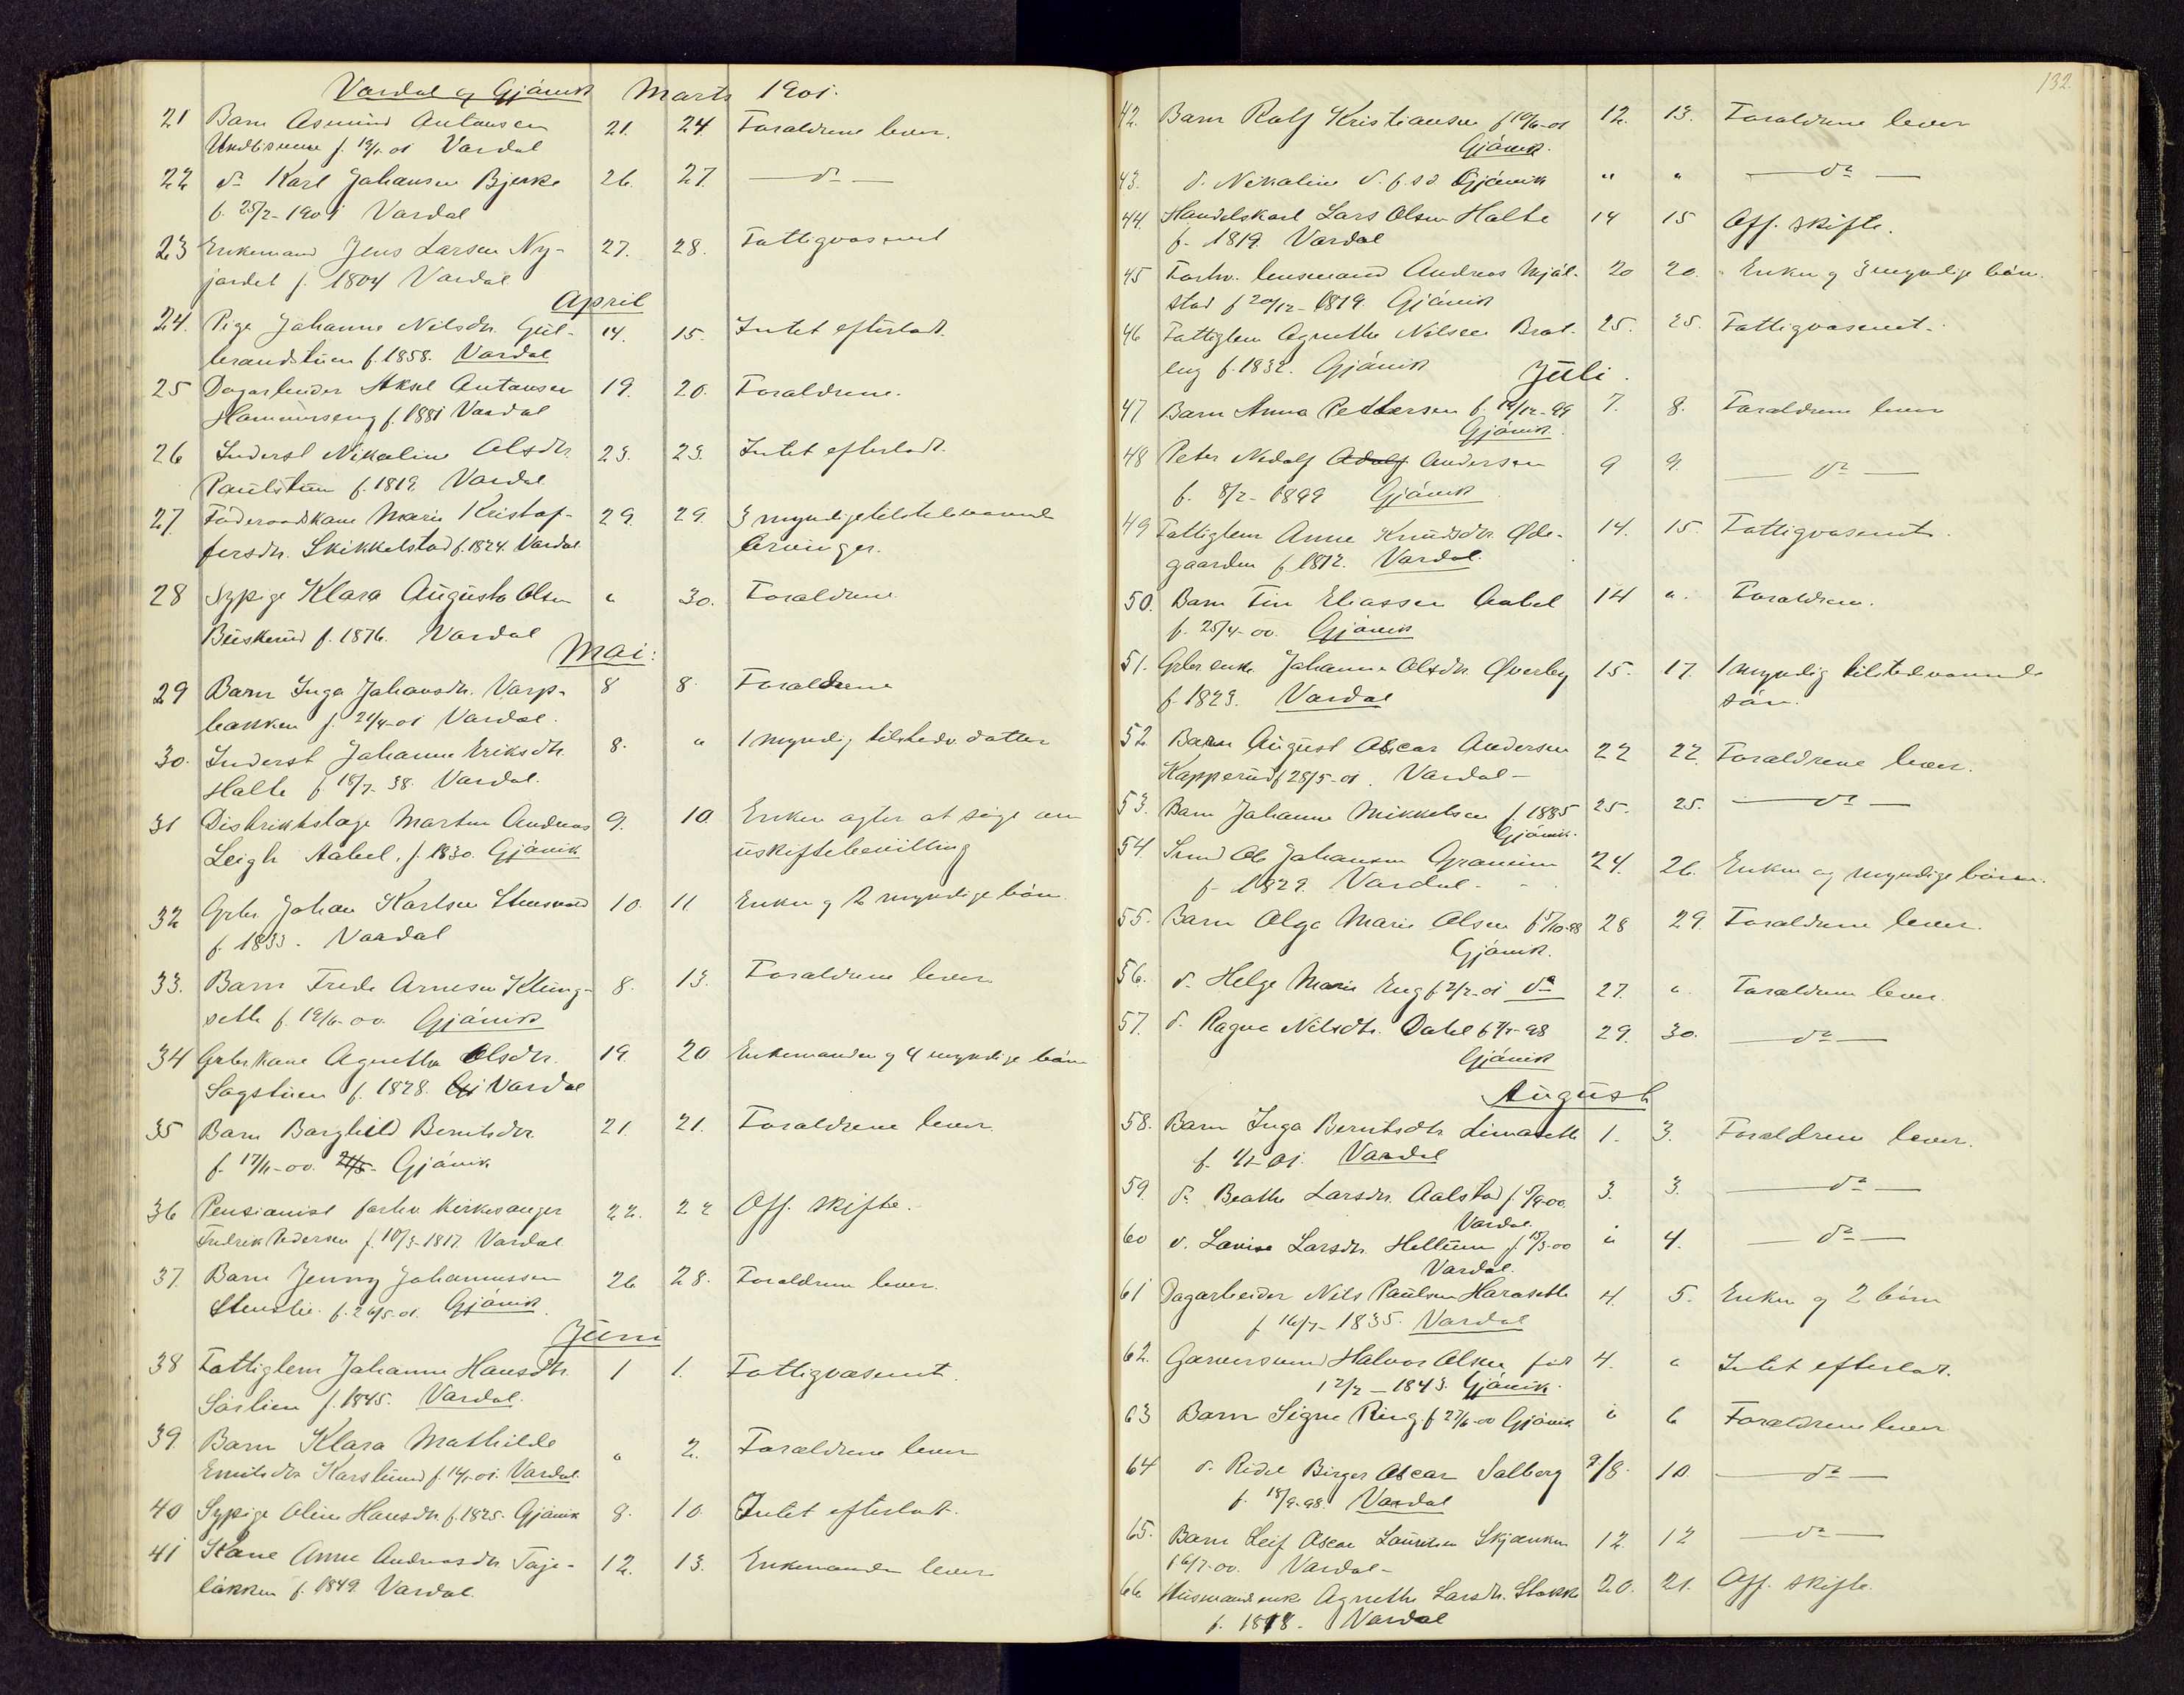 Vardal og Gjøvik Marts 1901.
21 Barn Asmund Antonsen 21. 24. Forældrene lever.
f. 19/1-01 Vardal
22 do Karl Johansen Bjerke 26. 27. — do —
f. 25/2-1901 Vardal
23 Enkemand Jens Larsen Ny- 27. 28. Fattigvæsenet
jordet f. 1804 Vardal
April
24. Pige Johanne Nilsdtr. Gul- 14. 15. Intet efterladt.
brandstuen f. 1858. Vardal
25 Dagarbeider Aksel Antonsen 19. 20. Forældrene.
Hammerseng f. 1881 Vardal
26 Inderst Nikoline Olsdtr. 23. 23. Intet efterladt.
Paulstuen f. 1819. Vardal
27. Føderaadskone Marie Kristof- 29. 29. 3 myndige tilstedeværende
fersdtr. Skikkelstad f. 1824. Vardal arvinger.
28 Sypige Klara Augusta Olsen " 30. Forældrene
Buskerud f. 1876. Vardal
Mai:
29 Barn Inga Johansdtr. Varp- 8 8. Forældrene
bakken f. 24/4-01 Vardal.
30. Inderst Johanne Eriksdtr. 8. " 1 myndig tilstedv. datter
Holte f. 18/7-38. Vardal.
31 Distriktslæge Morten Andreas 9. 10. Enken agter at søge om
Leigh Aabel, f. 1830. Gjøvik uskiftebevilling
32 Grbr. Johan Karlsen Stensvold 10. 11. Enken og 2 myndige børn.
f. 1833. Vardal
33. Barn Frede Arnesen Kling- 8. 13. Forældrene lever
sette f. 19/6-00. Gjøvik
34 Grbrkone Agnethe Olsdtr. 19. 20 Enkemanden og 4 myndige børn
Sagstuen f. 1828. Gj Vardal
35 Barn Borghild Berntsdtr. 21. 21. Forældrene lever
f. 17/11-00. 21/5- Gjøvik
36 Pensionist forhv. kirkesanger 22. 22 Off. skifte.
Fredrik Pedersen f. 10/3-1817. Vardal.
37. Barn Jenny Johannessen 26 28. Forældrene lever.
Stenslie. f. 26/5-01. Gjøvik
Juni
38 Fattiglem Johanne Hansdtr. 1 1. Fattigvæsenet.
Sørlien f. 1845. Vardal.
39. Barn Klara Mathilde " 2. Forældrene lever
Emilsdtr. Karslund f. 14/1-01. Vardal.
40 Sypige Oline Hansdtr. f. 1825. Gjøvik 8. 10. Intet efterladt.
41 Kone Anne Andreasdtr. Taje- 12. 13. Enkemanden lever
løkken f. 1849. Vardal.
132.
42. Barn Rolf Kristiansen f. 10/6-01 12. 13. Forældrene lever
Gjøvik.
43. d. Nikoline d. f. s.d. Gjøvik " " — do —
44. Handelskarl Lars Olsen Holte 14 15 Off. skifte.
f. 1819. Vardal
45 Forhv. lensmand Andreas Mjøl- 20 20. Enken og 3 myndige børn.
stad f. 20/12-1819. Gjøvik
46 Fattiglem Agnethe Nilsen Brat- 25. 25. Fattigvæsenet.
eng f. 1832. Gjøvik
Juli.
47. Barn Anna Pettersen f. 19/12-99 7. 8. Forældrene lever
Gjøvik.
48 Peter Nedolf Adolf Andersen 9 9. — do —
f. 8/2-1899 Gjøvik
49 Fattiglem Anne Knudsdtr. Øde- 14. 15. Fattigvæsenet.
gaarden f. 1812. Vardal.
50. Barn Finn Eliassen Aabel 14 ". Forældrene.
f. 25/4-00. Gjøvik
51. Grbr. enke Johanne Olsdtr. Øverby 15. 17. 1 myndig tilstedeværende
f. 1823. Vardal søn.
52. Barn August Oscar Andersen 22 22. Forældrene lever.
Kapperud f. 28/5-01. Vardal-
53. Barn Johanne Mikkelsen f. 1885 25. 25. — do —
Gjøvik.
54. Smed Ole Johansen 24. 26. Enken og myndige børn.
f. 1829. Vardal.
55. Barn Olga Marie Olsen f. 5/10-98 28 29. Forældrene lever.
Gjøvik.
56. d. Helge Marie Eng f. 2/2-01 do 27. " Forældrene lever.
57. d. Ragna Nilsdtr. Dahl 29. 30. — do —
Gjøvik
August
58. Barn Inga Berntsdtr. 1. 3. Forældrene lever.
Vardal
59. do Beathe Larsdtr. Aalstad f. 5/9-00. 3. 3. — do —
Vardal.
60 d. Lovise Larsdtr. f. 15/3-00 " 4. — do —
Vardal.
61 Dagarbeider Nils Paulsen Haraseth 4. 5. Enken og 2 børn
f. 16/7-1835. Vardal
62. Garversvend Halvor Olsen født 4. " Intet efterladt.
12/2-1843. Gjøvik.
63 Barn Signe Ring f. 27/6-00 Gjøvik " 6 Forældrene lever
64 d. Birger Oscar Solberg 9/8. 10. — do —
f. 18/9-98. Vardal
65. Barn Leif Oscar Lauritsen 12. 12 — do —
16/7-00. Vardal-
66 Husmandsenke Agnethe Larsdtr. Stokke 20. 21. Off. skifte.
f. 1818- Vardal